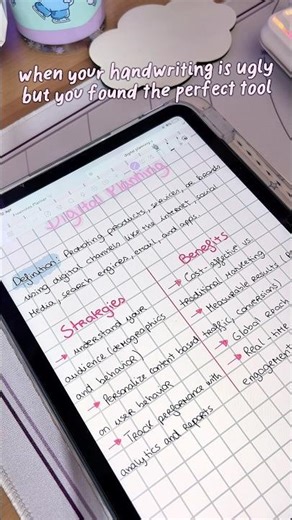 when your handwriting is ugly
but you found the perfect tool
Digital Planting
Definition: Promoting products, services, or brands
using digital channels like the internet, social
media, search engines, email, and apps.
Strategies
→ understand your
audience (demographics
and behavior)
→ Personalize content based
on user behavior
→ Track performance with
analytics and reports
Benefits
→ Cost-effective vs
traditional marketing
→ Measurable results (
traffic, conversions)
→ Global reach
→ Real-time
engagement